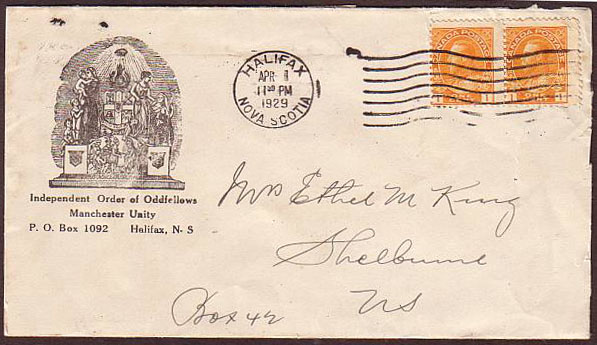 HALIFAX
APR 1
1130 PM
1929
NOVA SCOTIA
CANADA POSTAGE CANADA POSTAGE
1 1 1
Independent Order of Oddfellows
Manchester Unity
P. O. Box 1092 Halifax, N- S
Mrs Ethel M King
Shelburne
NS
Box 42